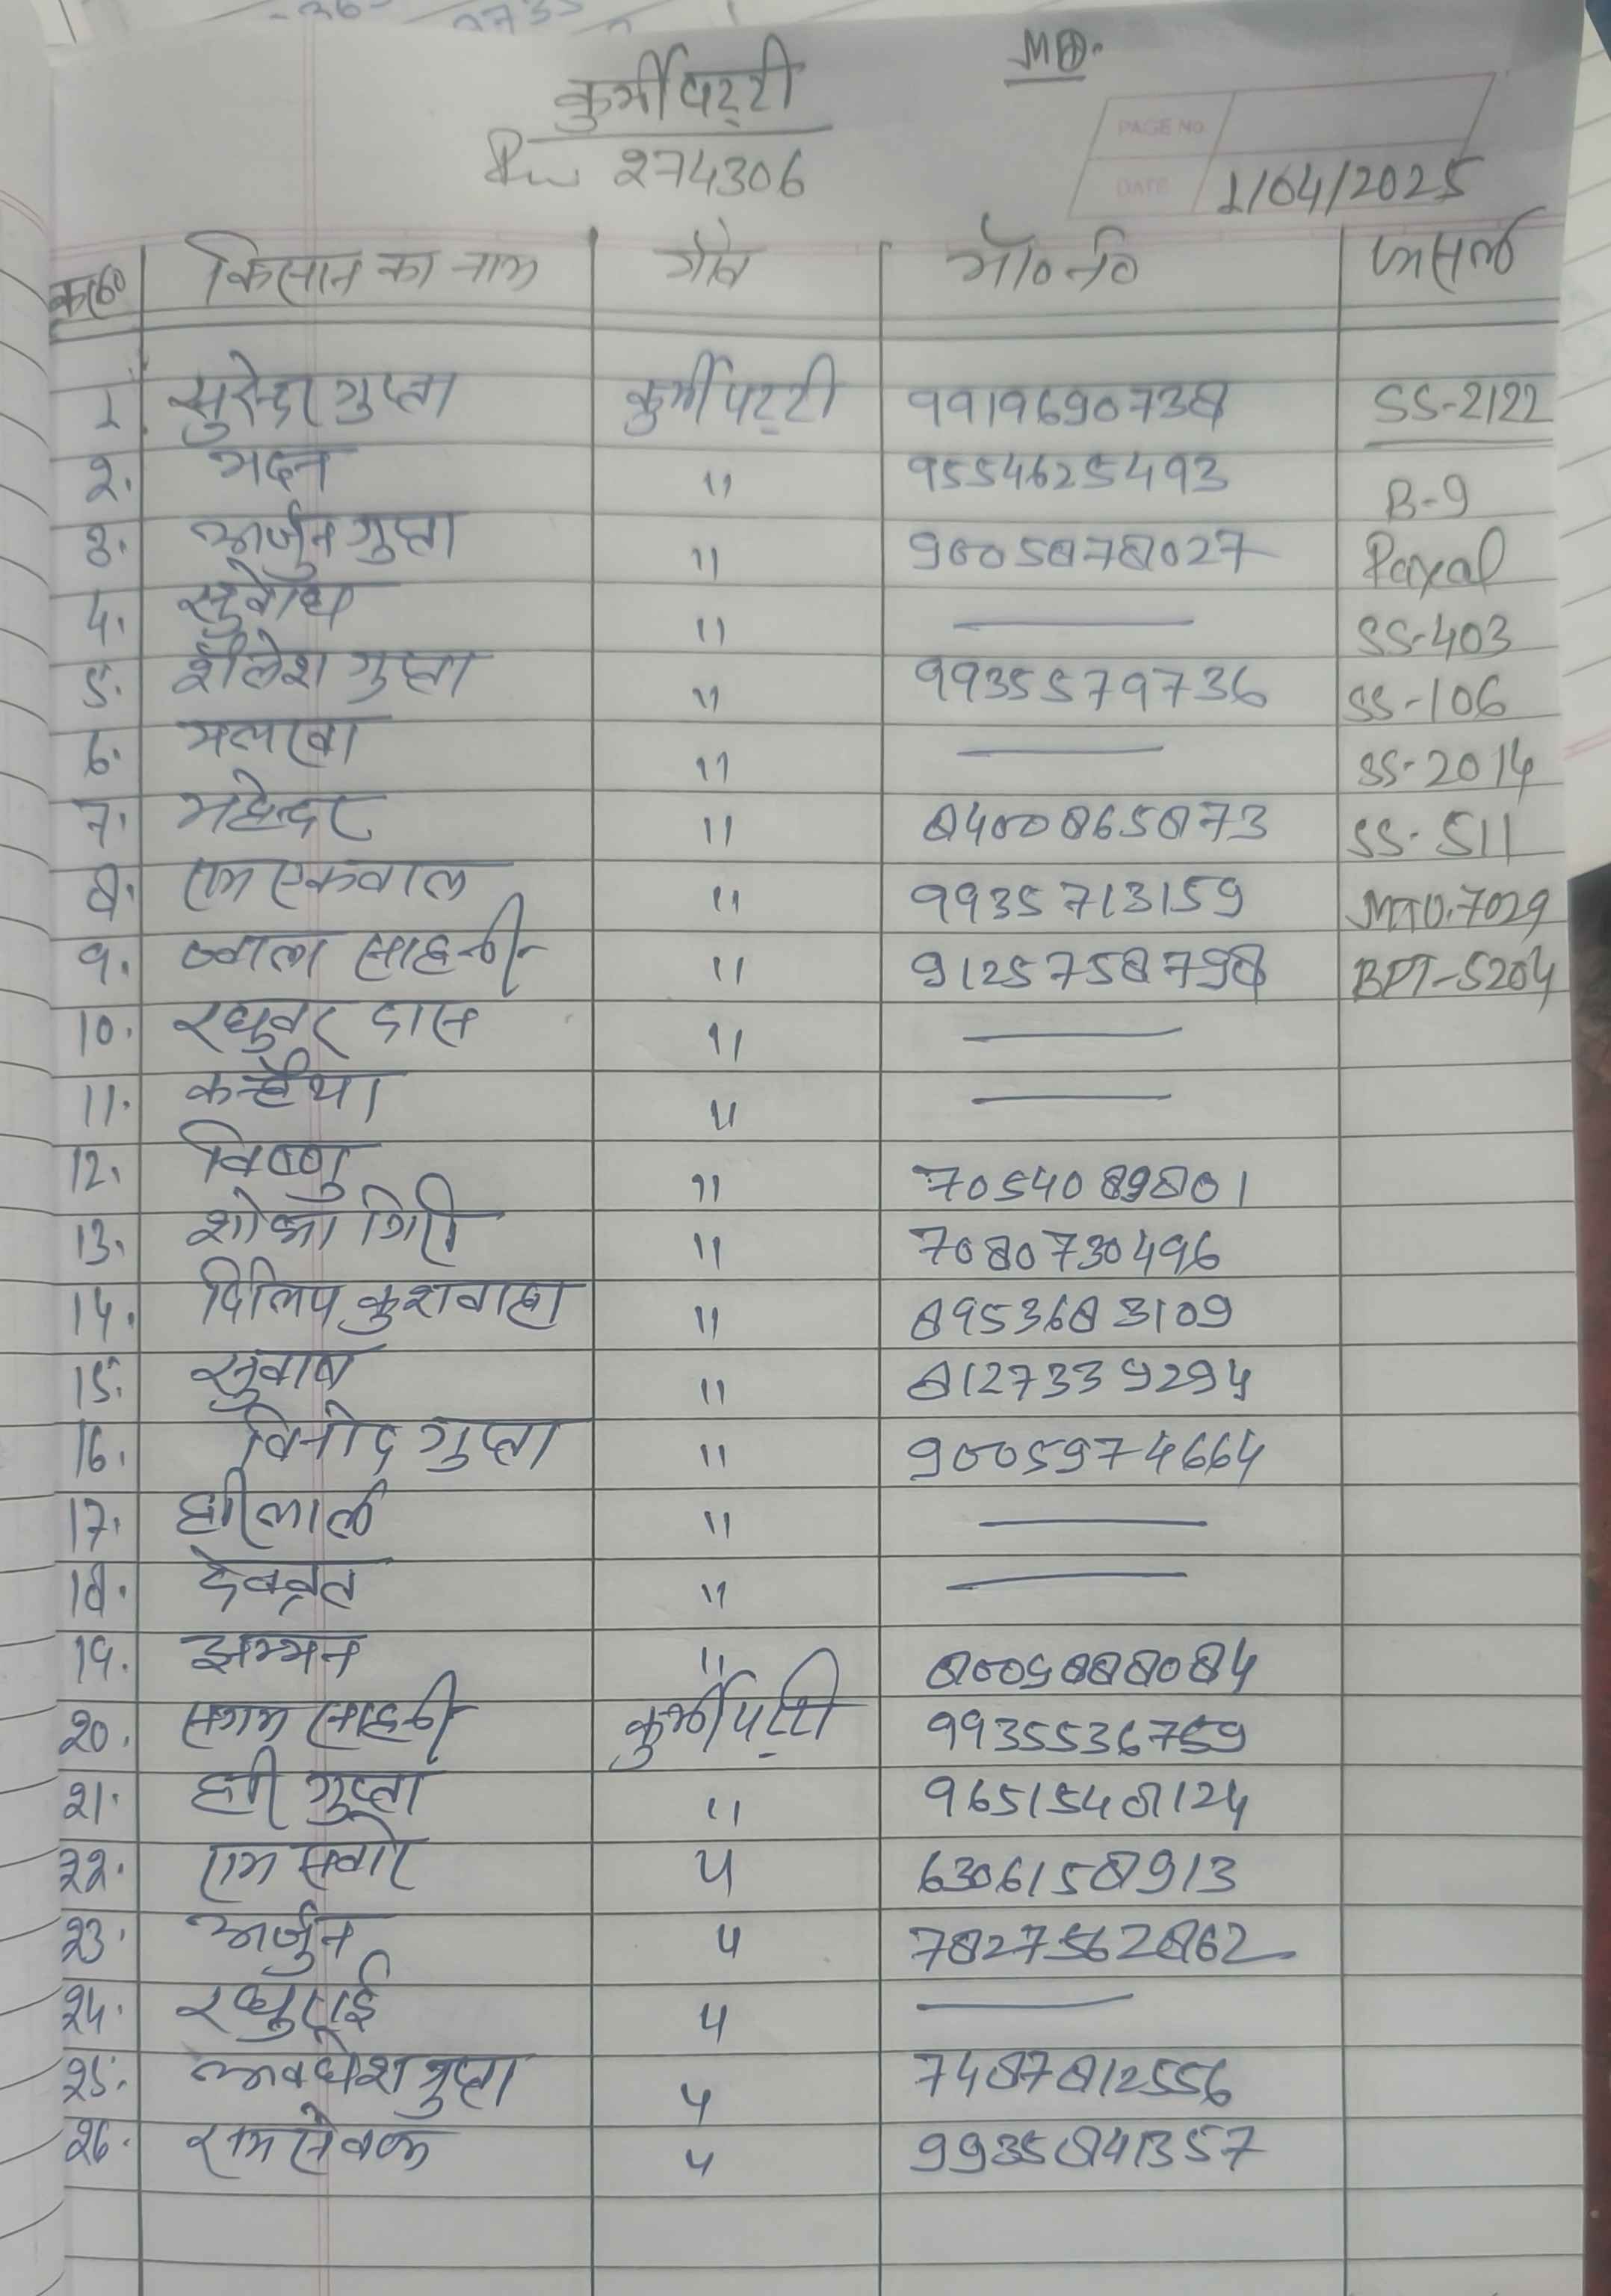 MD.
कुर्मीपट्टी
Pin 274306
PAGE NO.
DATE 1/04/2025
क्र०सं० किसान का नाम गाँव मो०नं० फसल
1. सुरेन्द्र गुप्ता कुर्मीपट्टी 9919690738 SS-2122
2. मदन " 9554625493 B-9
3. अर्जुन गुप्ता " 9005878027
4. सुबोध " — SS-403
5. शैलेश गुप्ता " 9935579736 SS-106
6. " — SS-2014
7. महेन्दर " 8400865873 SS-511
8. राम एकबाल " 9935713159 MTU.7029
9. ज्वाला साहनी " 9125758798 BPT-5204
10. रघुबर दास " —
11. कन्हैया " —
12. विष्णु " 7054089801
13. शोभा गिरी " 7080730496
14. दिलिप कुशवाहा " 8953683109
15. सुबाष " 8127339294
16. विनोद गुप्ता " 9005974664
17. हरीलाल " —
18. देवब्रत " —
19. झम्मन " 8005888084
20. साहनी कुर्मीपट्टी 9935536759
21. हरी गुप्ता " 9651548124
22. राम सवारे " 6306158913
23. अर्जुन " 7827562862
24. रघुराई " —
25. अवधेश गुप्ता " 7487812556
26. रामसेवक " 9935841357